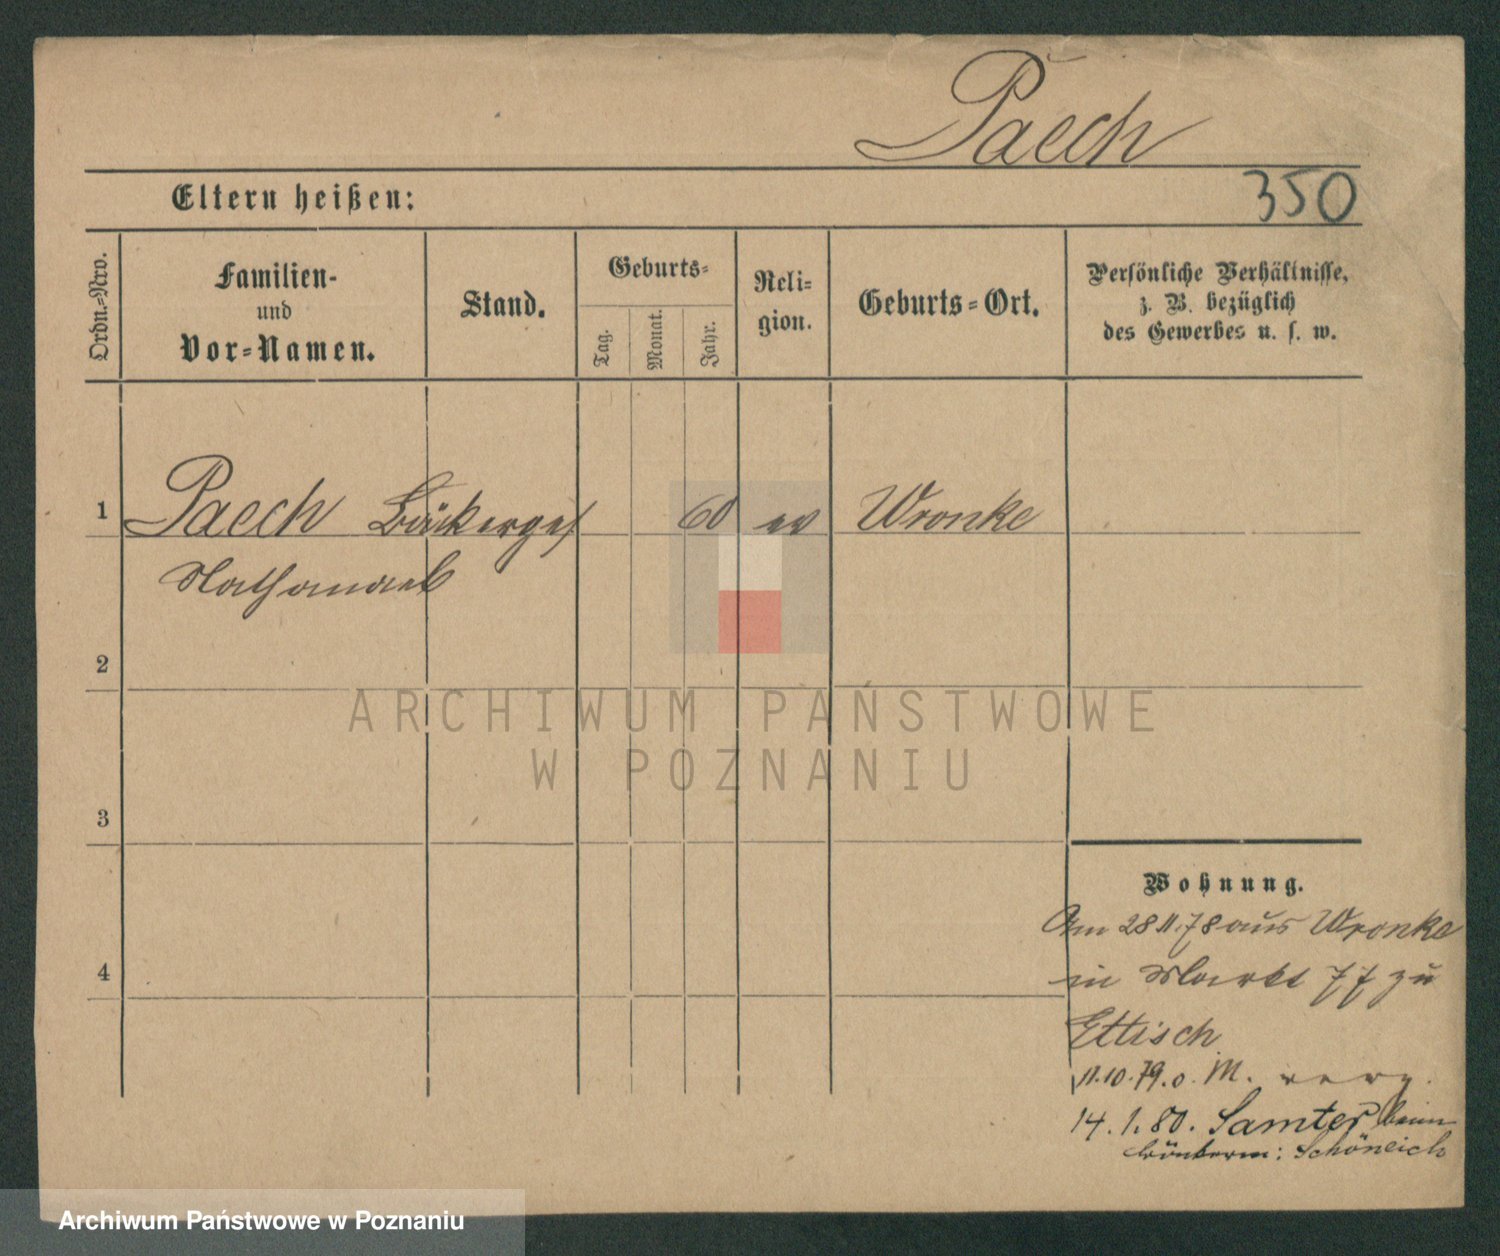 Paech
Eltern heißen:
350
Ordn.-Nro.
Familien-
und
Vor-Namen.
Stand.
Geburts-
Tag.
Monat.
Jahr.
Reli-
gion.
Geburts-Ort.
Persönliche Verhältnisse,
z. B. bezüglich
des Gewerbes u. s. w.
1
Paech Bäckerges 60 ev Wronke
Nathanael
2
ARCHIWUM PAŃSTWOWE
W POZNANIU
3
Wohnung.
Am 28 11.78 aus Wronke
4
in Markt 77 zu
Ettisch
11.10.79. o. M. verz.
14. 1. 80. Samter beim
Bäckerm: Schöneich
Archiwum Państwowe w Poznaniu